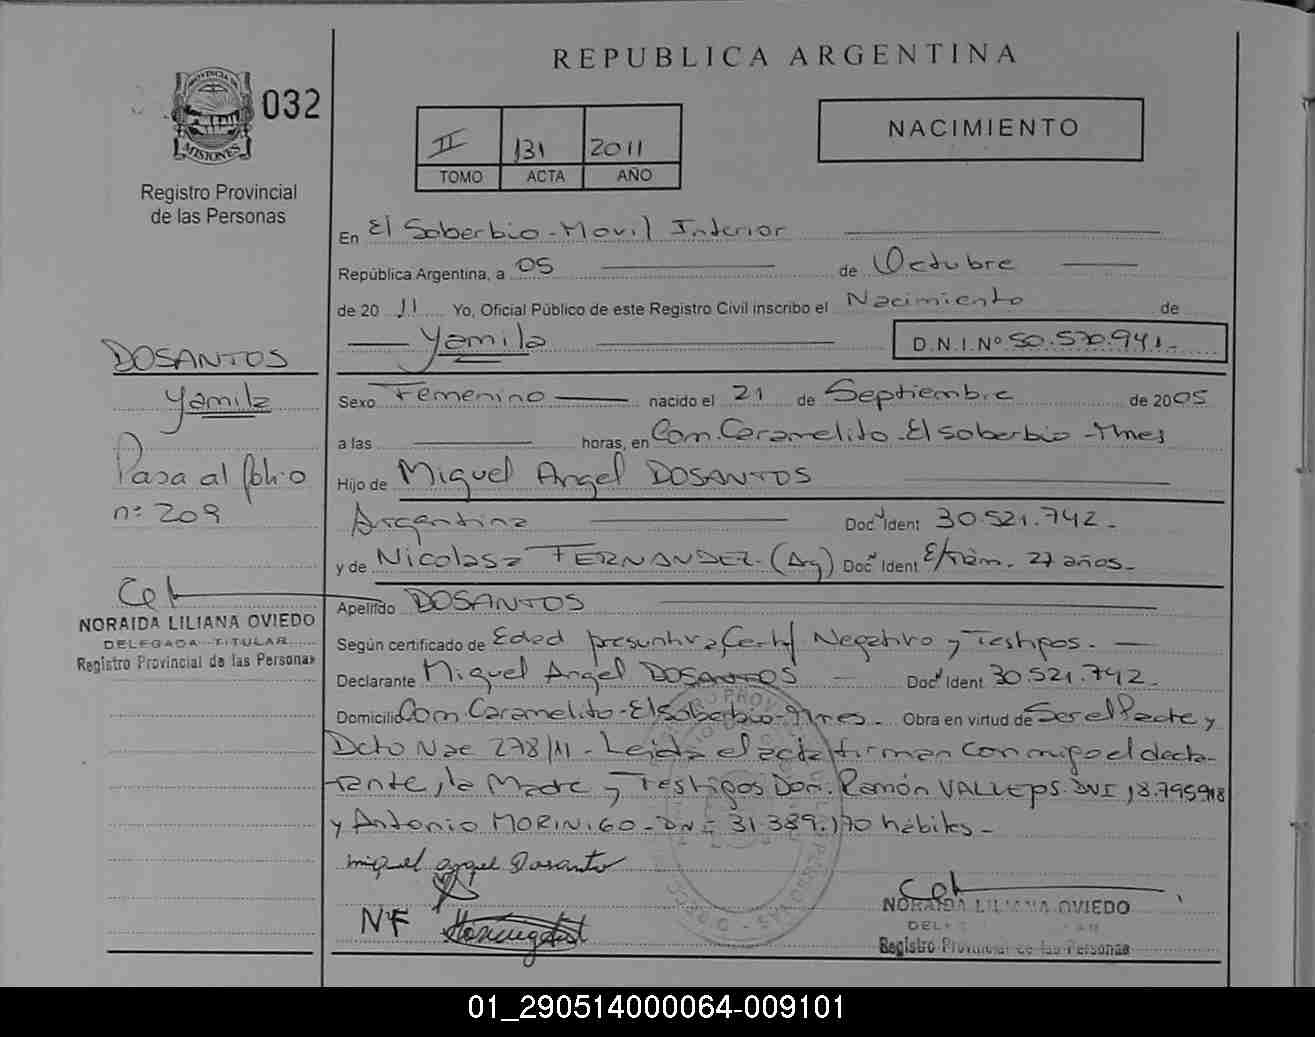 REPUBLICA ARGENTINA
PROVINCIA DE
MISIONES
032
Registro Provincial
de las Personas
II 131 2011
TOMO ACTA AÑO
NACIMIENTO
En El Soberbio - Movil Interior
República Argentina, a 05 de Octubre
de 2011 Yo, Oficial Público de este Registro Civil inscribo el Nacimiento de
Yamila D.N.I.Nº 50.570.941.-
Sexo Femenino nacido el 21 de Septiembre de 2005
a las horas, en Com. Caramelito - El soberbio - Mnes
Hijo de Miguel Angel DOSANTOS
Argentina Doc Ident 30.521.742.-
y de Nicolasa FERNANDEZ (Arg) Doc Ident E/trám. 27 años.-
Apellido DOSANTOS
Según certificado de Edad presuntiva, Certf Negativo y Testigos.
Declarante Miguel Angel DOSANTOS Doc Ident 30.521.742.-
Domicilio Com. Caramelito - El soberbio - Mnes. Obra en virtud de Ser el Padre y
Dcto Nac 278/11 - Leída el acta firman conmigo el decla-
rante, la Madre y Testigos Don. Ramón DNI 18.795.918
y Antonio MORINIGO - DNI 31.389.170 hábiles -
miguel angel Dosanto
NF
NORAIDA LILIANA OVIEDO
DELEGADA TITULAR
Registro Provincial de las Personas
DOSANTOS
Yamila
Pasa al folio
nº 209
NORAIDA LILIANA OVIEDO
DELEGADA TITULAR
Registro Provincial de las Personas
01_290514000064-009101